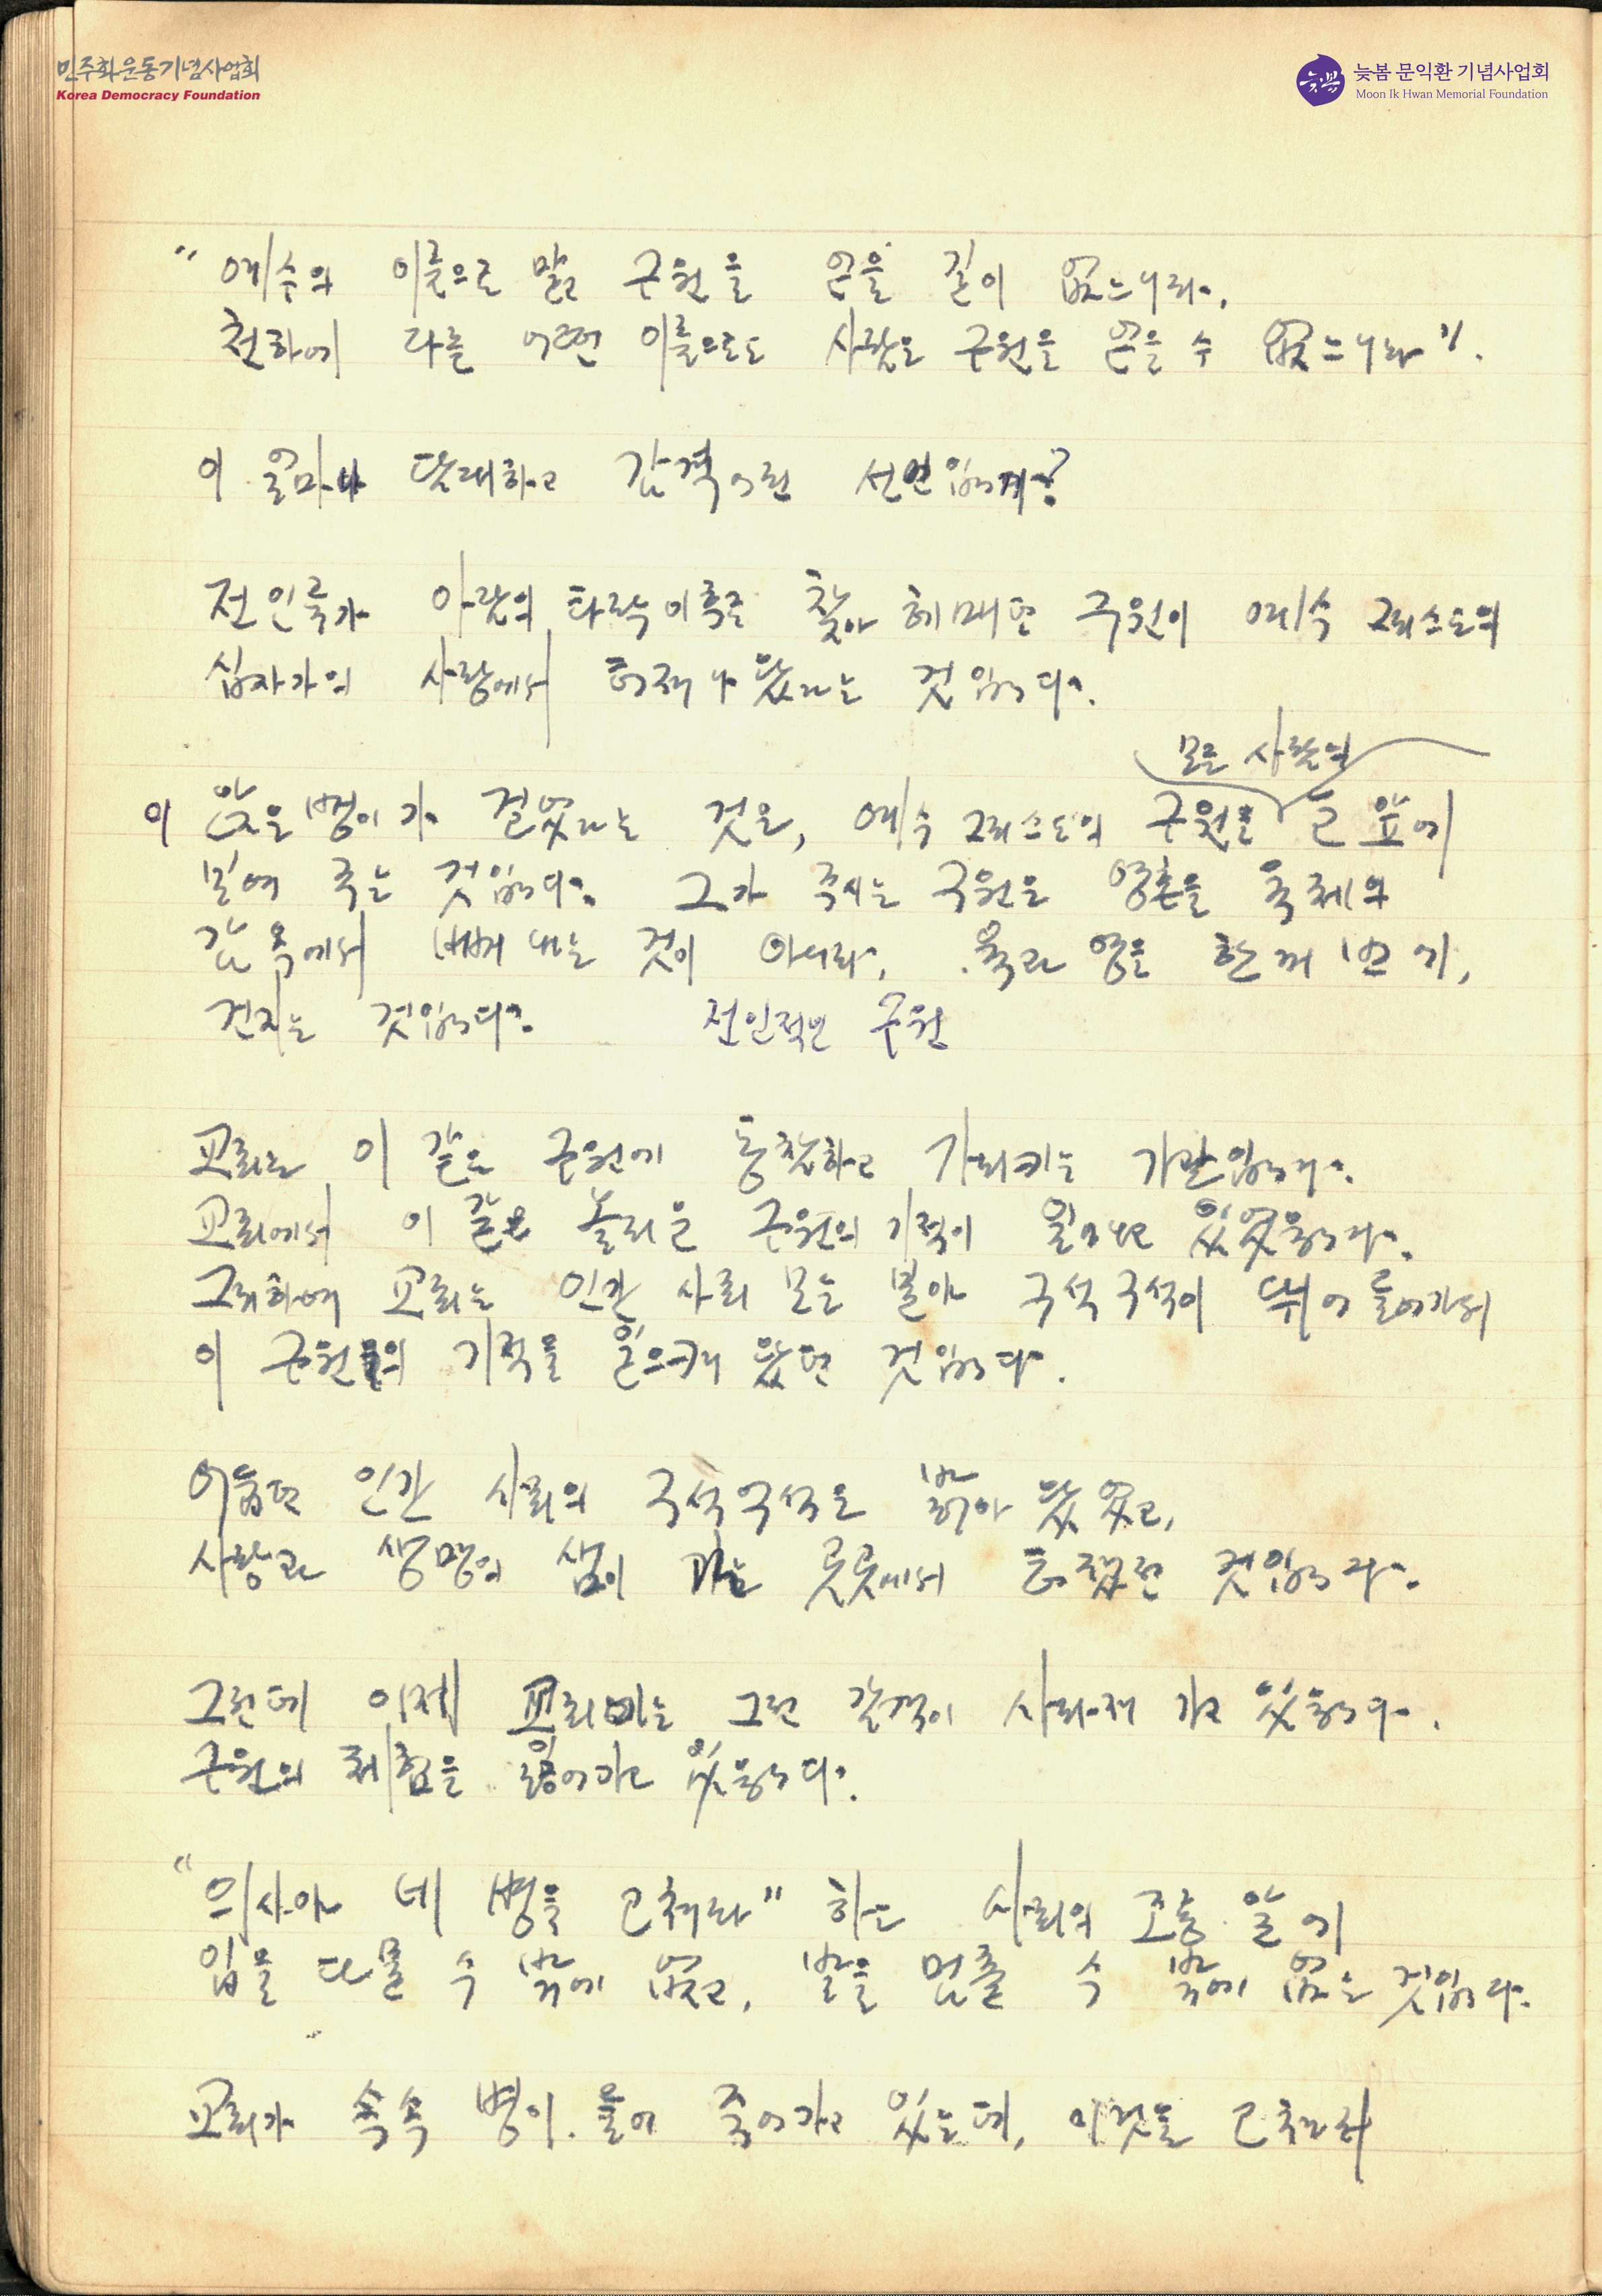 민주화운동기념사업회
Korea Democracy Foundation
늦봄 문익환 기념사업회
Moon Ik Hwan Memorial Foundation
"예수의 이름으로 말고 구원을 얻을 길이 없느니라.
천하에 다른 어떤 이름으로도 사람은 구원을 얻을 수 없느니라".
이 얼마나 담대하고 감격어린 선언입니까?
전 인류가 아담의 타락 이후로 찾아 헤매던 구원이 예수 그리스도의
십자가의 사랑에서 터져나왔다는 것입니다.
모든 사람의
이 앉은뱅이가 걸었다는 것은, 예수 그리스도의 구원을 눈 앞에
보여 주는 것입니다. 그가 주시는 구원은 영혼을 육체의
감옥에서 빼내는 것이 아니라, 육과 영을 함께
건지는 것입니다. 전인적인 구원
교회는 이 같은 구원에 동참하고 가리키는 기관입니다.
교회에서 이 같은 놀라운 구원의 기적이 일어나고 있었습니다.
그리하여 교회는 인간 사회 모든 분야 구석구석에 뛰어 들어가서
이 구원의 기적을 일으켜 왔던 것입니다.
어둡던 인간 사회의 구석구석은 밝아 왔었고,
사랑과 생명의 샘이 곳곳에서 터졌던 것입니다.
그런데 이제 교회에는 그런 감격이 사라져 가고 있습니다.
구원의 체험을 잃어가고 있습니다.
"의사야 네 병을 고쳐라" 하는 사회의 조롱 앞에
입을 다물 수 밖에 없고, 발을 멈출 수 밖에 없는 것입니다.
교회가 속속 병이 들어 죽어가고 있는데, 이것을 고쳐라